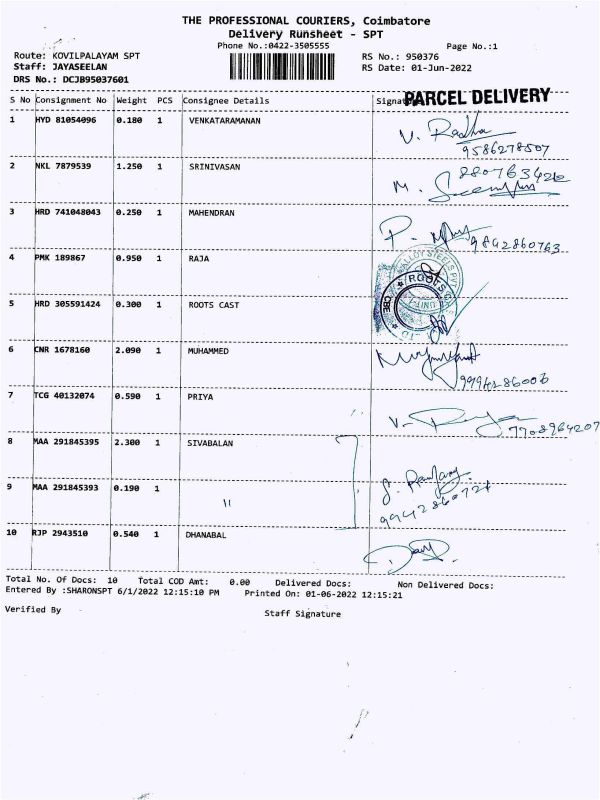 THE PROFESSIONAL COURIERS, Coimbatore
Delivery Runsheet - SPT
Phone No.:0422-3505555
Page No.:1
Route: KOVILPALAYAM SPT
RS No.: 950376
Staff: JAYASEELAN
RS Date: 01-Jun-2022
DRS No.: DCJB95037601
S No Consignment No Weight PCS Consignee Details
PARCEL DELIVERY
1 HYD 81054096 0.180 1 VENKATARAMANAN
V. Radha
9586278507
2 NKL 7879539 1.250 1 SRINIVASAN
M.
3 HRD 741048043 0.250 1 MAHENDRAN
P.
9842860763
4 PMK 189867 0.950 1 RAJA
ALLOY STEELS PVT
ROOTS
CBE
5 HRD 305591424 0.300 1 ROOTS CAST
6 CNR 1678160 2.090 1 MUHAMMED
7 TCG 40132074 0.590 1 PRIYA
V.
7708964207
8 MAA 291845395 2.300 1 SIVABALAN
9 MAA 291845393 0.190 1 "
10 RJP 2943510 0.540 1 DHANABAL
Total No. Of Docs: 10 Total COD Amt: 0.00 Delivered Docs: Non Delivered Docs:
Entered By :SHARONSPT 6/1/2022 12:15:10 PM Printed On: 01-06-2022 12:15:21
Verified By
Staff Signature